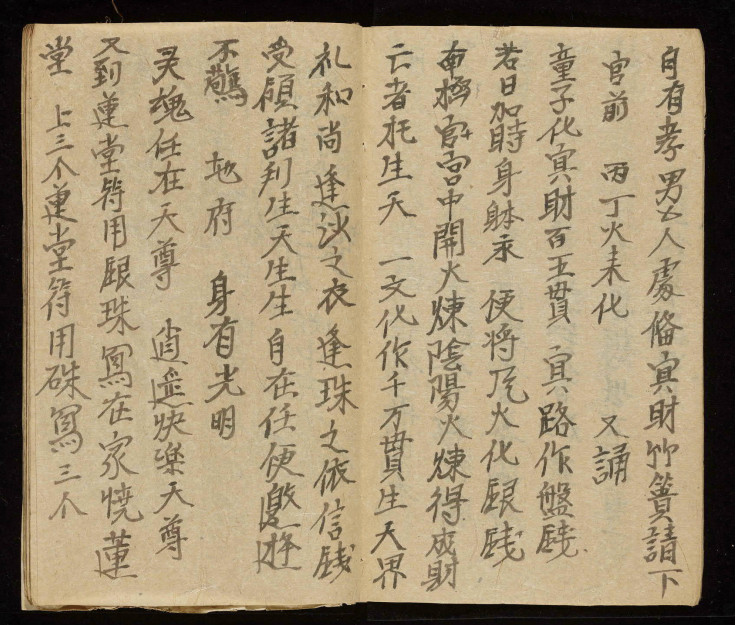 自有孝男公人處俻㝠財竹簣請下
官前 丙丁火耒化 又誦
童子化㝠財百五貫 㝠路作盤銭
若日加時身躰永 便将瓦火化銀銭
南極宫中開火煉陰陽火煉得成財
亡者托生天 一文化作千万貫生天界
礼和尚逢沙之衣逢珠之依信銭
受領諸刋生天生生自在任便遨遊
不驚 地府 身有光明
灵魂任在天尊 逍遥快楽天尊
又到蓮堂符用銀珠寫在家焼蓮
堂 上三个蓮堂符用硃寫三个